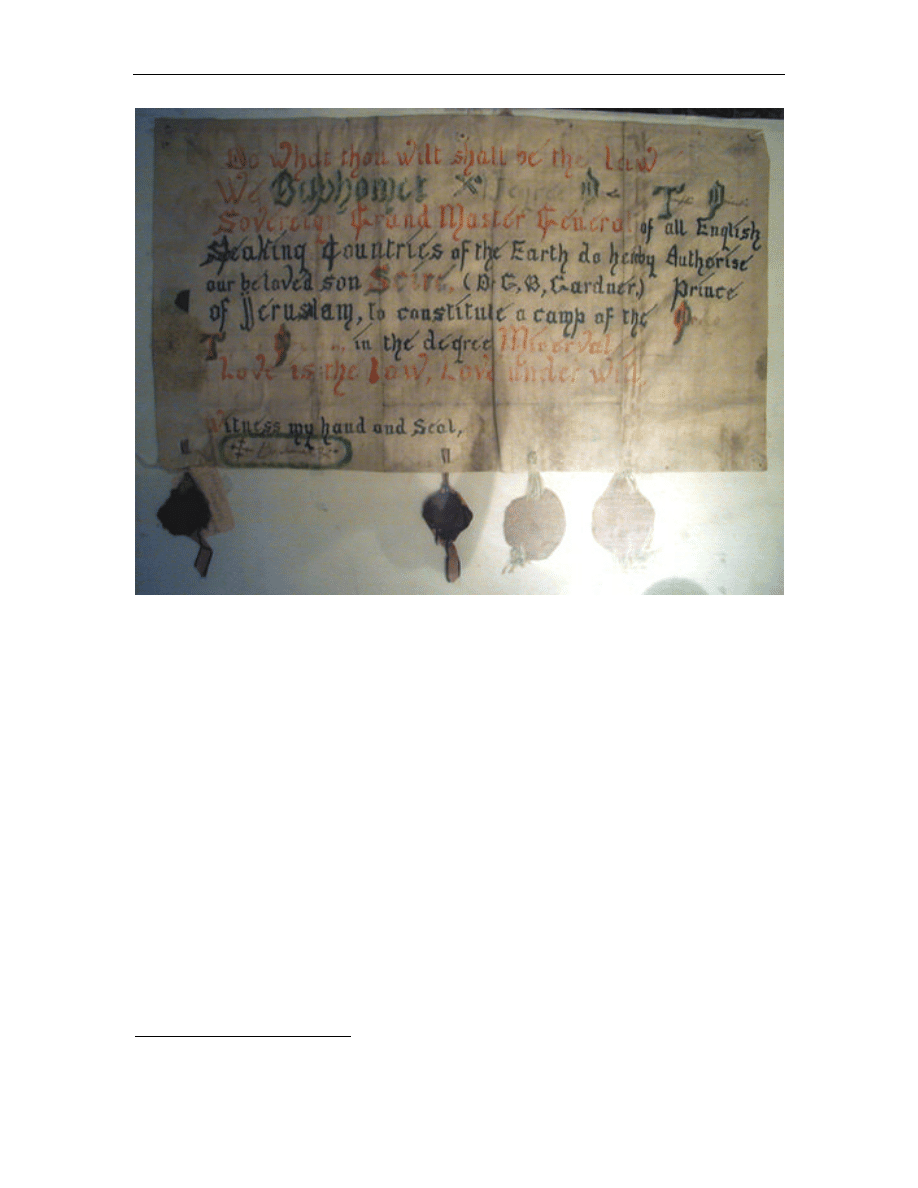 Do what thou wilt shall be the law
We Baphomet Degree
Sovereign Grand Master General of all English
Speaking Countries of the Earth do hereby Authorise
our beloved son Scire, (Dr G, B, Gardner,) Prince
of Jeruslam, to constitute a camp of the
in the degree Minerval
Love is the Law, Love under will,
Witness my hand and Seal,